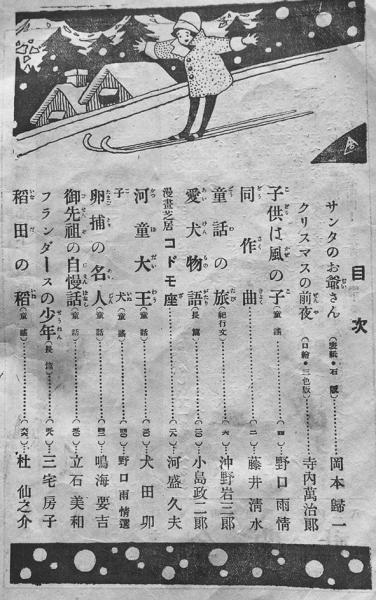 目次
サンタのお爺さん(表紙・石版)…………岡本歸一
クリスマスの前夜(口繪・三色版)…………寺内萬治郎
子供は風の子(童謠)…………(一四)…野口雨情
同作曲…………(一二)…藤井清水
童話の旅(紀行文)…………(一六)…沖野岩三郎
愛犬物語(長篇)…………小島政二郎
漫畫芝居コドモ座…………河盛久夫
河童大王(童話)…………犬田卯
子犬(童謠)…………野口雨情選
卵捕の名人(童話)…………鳴海要吉
御先祖の自慢話(童話)…………立石美和
フランダースの少年(長篇)…………三宅房子
稻田の稻(童謠)…………杜仙之介